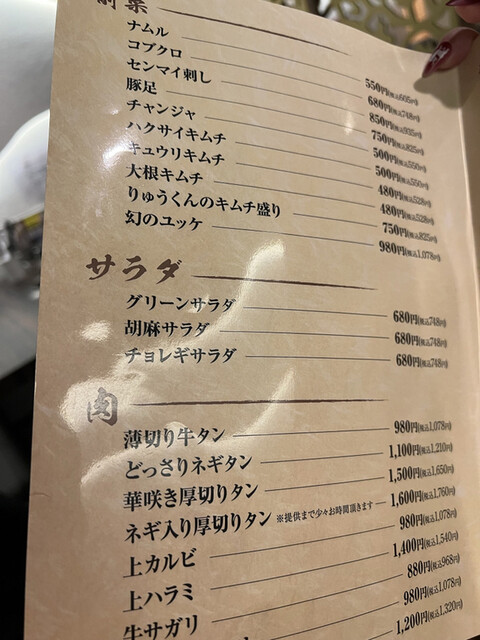 前菜
ナムル 550円(税込605円)
コブクロ 680円(税込748円)
センマイ刺し 850円(税込935円)
豚足 750円(税込825円)
チャンジャ 500円(税込550円)
ハクサイキムチ 500円(税込550円)
キュウリキムチ 480円(税込528円)
大根キムチ 480円(税込528円)
りゅうくんのキムチ盛り 750円(税込825円)
幻のユッケ 980円(税込1,078円)
サラダ
グリーンサラダ 680円(税込748円)
胡麻サラダ 680円(税込748円)
チョレギサラダ 680円(税込748円)
肉
薄切り牛タン 980円(税込1,078円)
どっさりネギタン 1,100円(税込1,210円)
華咲き厚切りタン 1,500円(税込1,650円)
ネギ入り厚切りタン ※提供まで少々お時間頂きます 1,600円(税込1,760円)
上カルビ 980円(税込1,078円)
上ハラミ 1,400円(税込1,540円)
牛サガリ 880円(税込968円)
980円(税込1,078円)
1,200円(税込1,320円)